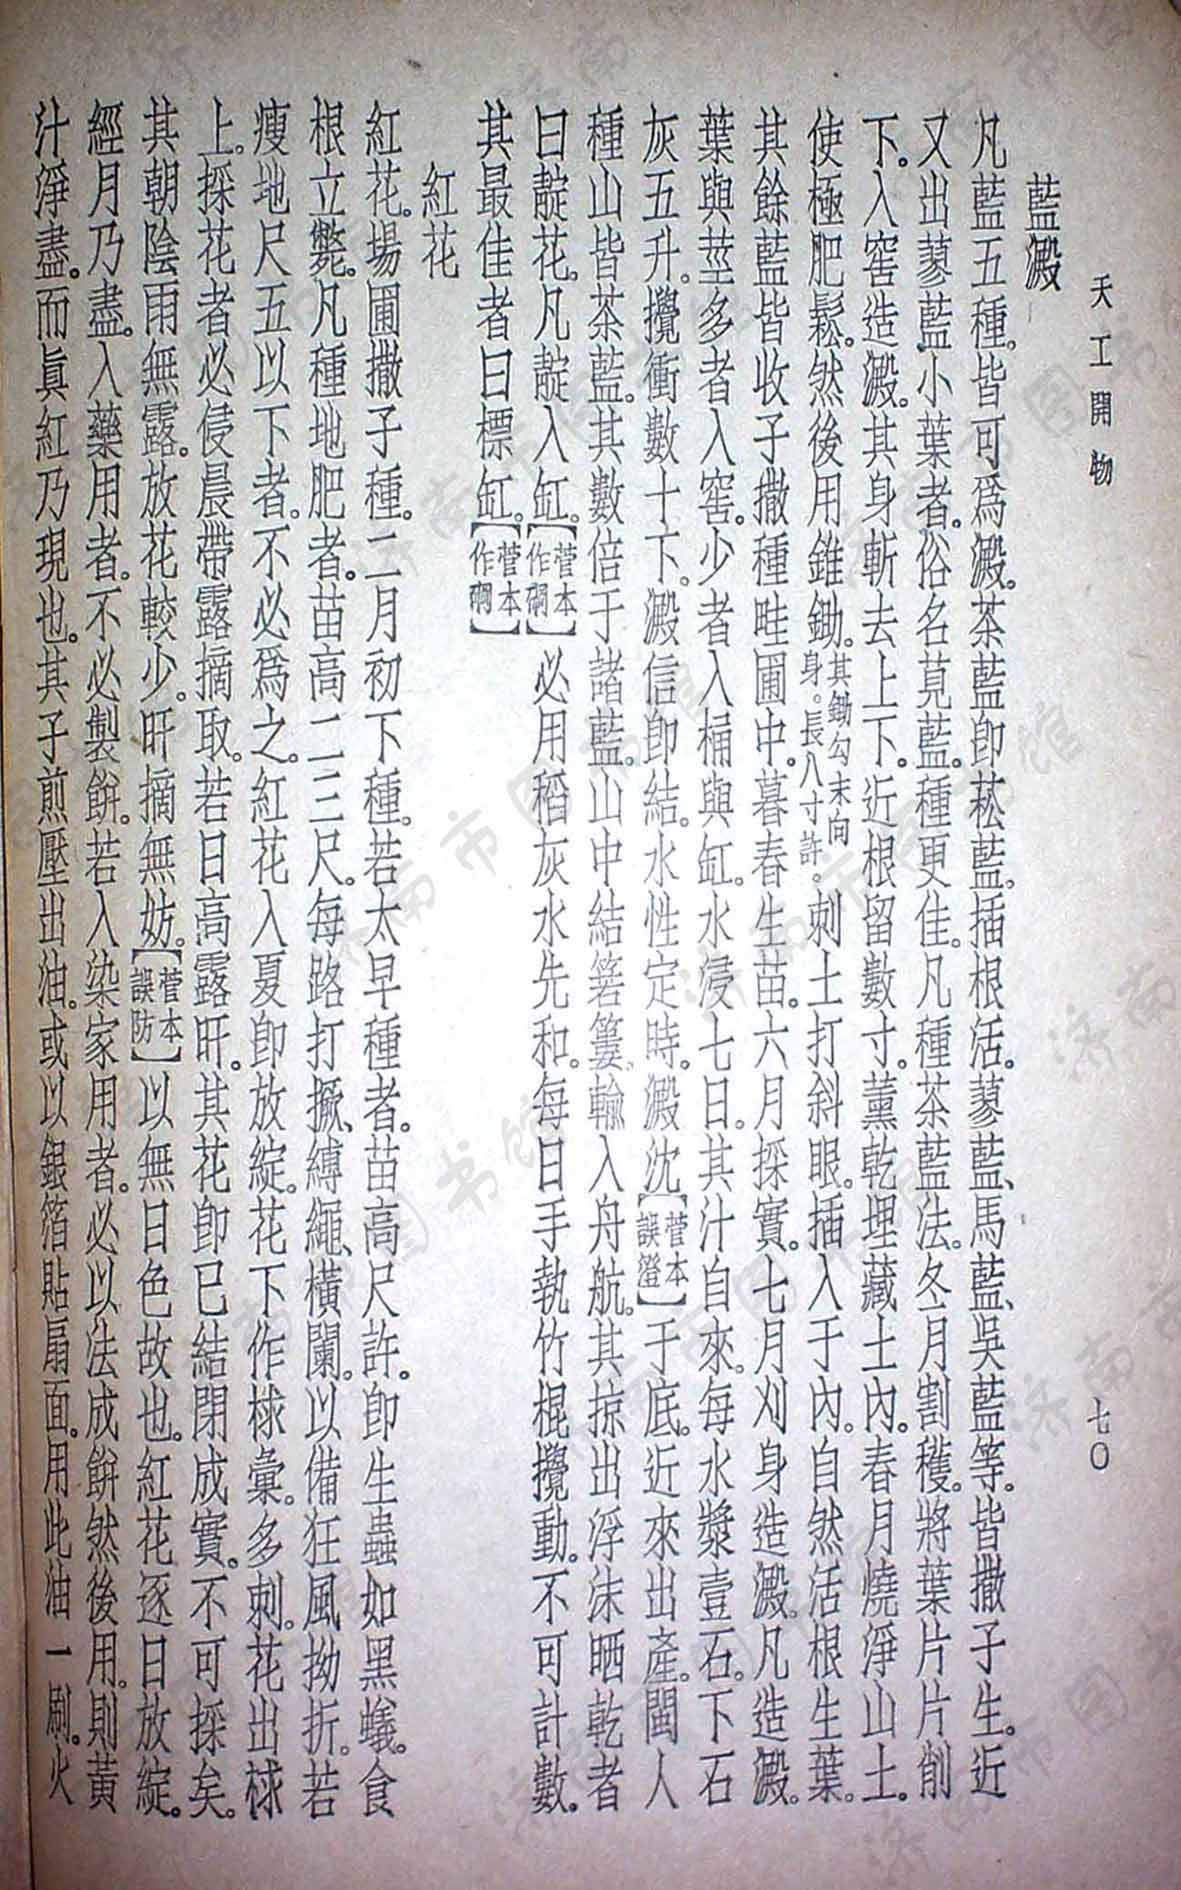 天工開物
七〇
藍澱
凡藍五種。皆可爲澱。茶藍卽菘藍。插根活。蓼藍、馬藍、吳藍等。皆撒子生。近
又出蓼藍小葉者。俗名莧藍。種更佳。凡種茶藍法。冬月割穫。將葉片片削
下。入窖造澱。其身斬去上下。近根留數寸。薰乾埋藏土內。春月燒淨山土。
使極肥鬆。然後用錐鋤。其鋤勾末向身。長八寸許。刺土打斜眼。插入于內。自然活根生葉。
其餘藍皆收子撒種畦圃中。暮春生苗。六月採實。七月刈身造澱。凡造澱。
葉與莖多者入窖。少者入桶與缸。水浸七日。其汁自來。每水漿壹石。下石
灰五升。攪衝數十下。澱信卽結。水性定時。澱沈【菅本誤澄】于底。近來出產。閩人
種山皆茶藍。其數倍于諸藍。山中結箬簍、輸入舟航。其掠出浮沫晒乾者
曰靛花。凡靛入缸。【菅本作㼚】必用稻灰水先和。每日手執竹棍攪動。不可計數。
其最佳者曰標缸。【菅本作㼚】
紅花
紅花。場圃撒子種。二月初下種。若太早種者。苗高尺許。卽生蟲如黑蟻。食
根立斃。凡種地肥者。苗高二三尺。每路打橛、縛繩、橫闌。以備狂風拗折。若
瘦地尺五以下者。不必爲之。紅花入夏卽放綻。花下作梂彙。多刺。花出梂
上。採花者必侵晨帶露摘取。若日高露旰。其花卽已結閉成實。不可採矣。
其朝陰雨無露。放花較少。旰摘無妨。【菅本誤防】以無日色故也。紅花逐日放綻。
經月乃盡。入藥用者。不必製餅。若入染家用者。必以法成餅然後用。則黃
汁淨盡。而眞紅乃現也。其子煎壓出油。或以銀箔貼扇面。用此油一刷。火